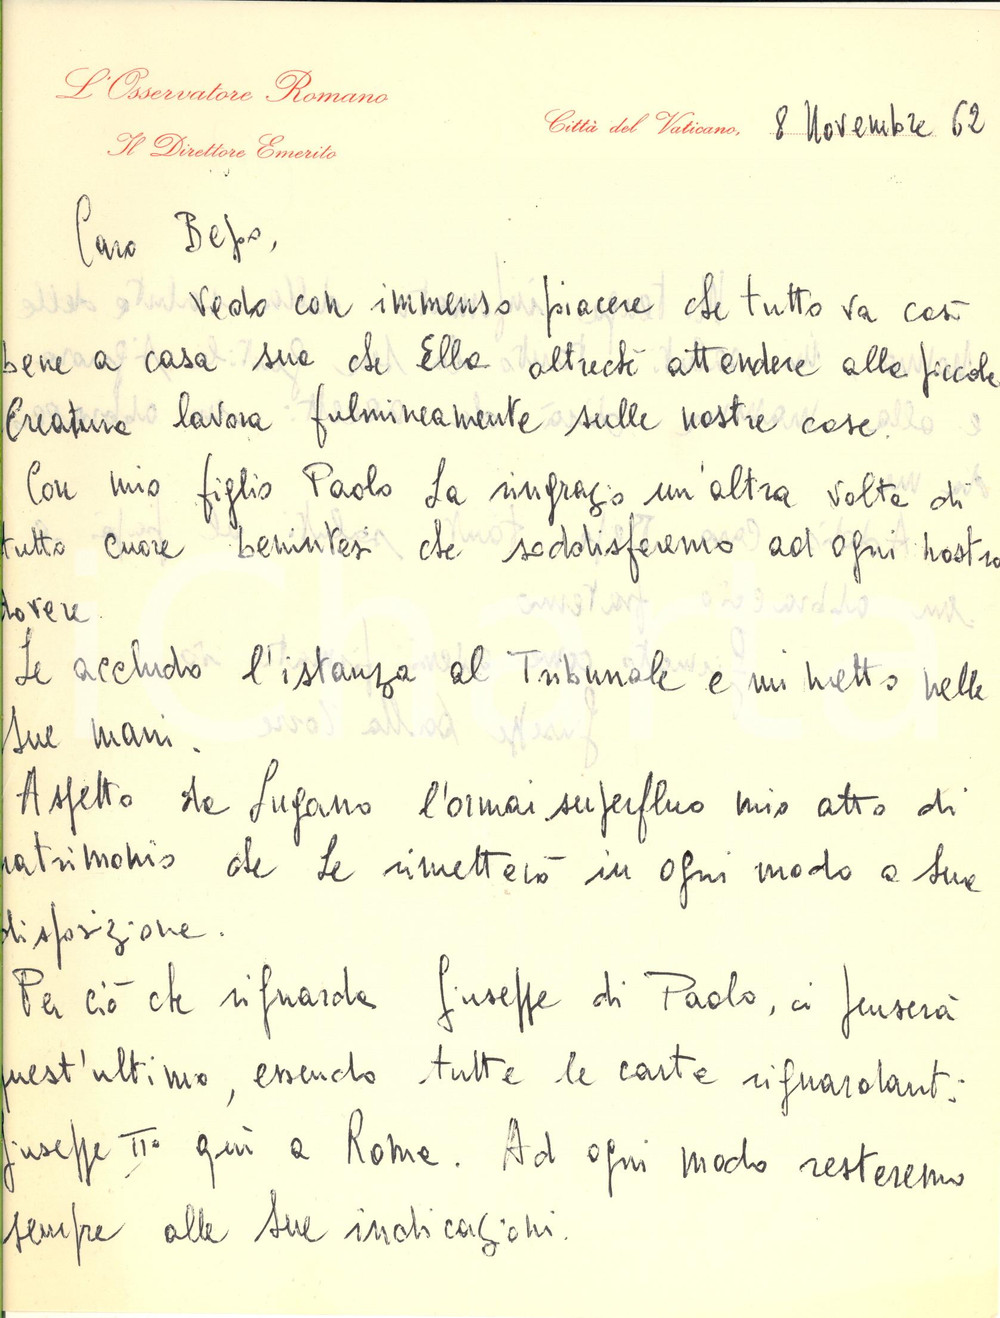 L'Osservatore Romano
Il Direttore Emerito
Città del Vaticano, 8 Novembre 62
Caro Bepo,
vedo con immenso piacere che tutto va così
bene a casa sua che Ella oltreché attendere alla piccola
Creatura lavora fulmineamente sulle nostre cose.
Con mio figlio Paolo La ringrazio un'altra volta di
tutto cuore beninteso che soddisferemo ad ogni nostro
dovere.
Le accludo l'istanza al Tribunale e mi metto nelle
Sue mani.
Aspetto da Lugano l'ormai superfluo mio atto di
matrimonio che Le rimetterò in ogni modo a Sua
disposizione.
Per ciò che riguarda Giuseppe di Paolo, ci penserà
quest'ultimo, essendo tutte le carte riguardanti
Giuseppe IIº qui a Roma. Ad ogni modo resteremo
sempre alle Sue indicazioni.
iCharta